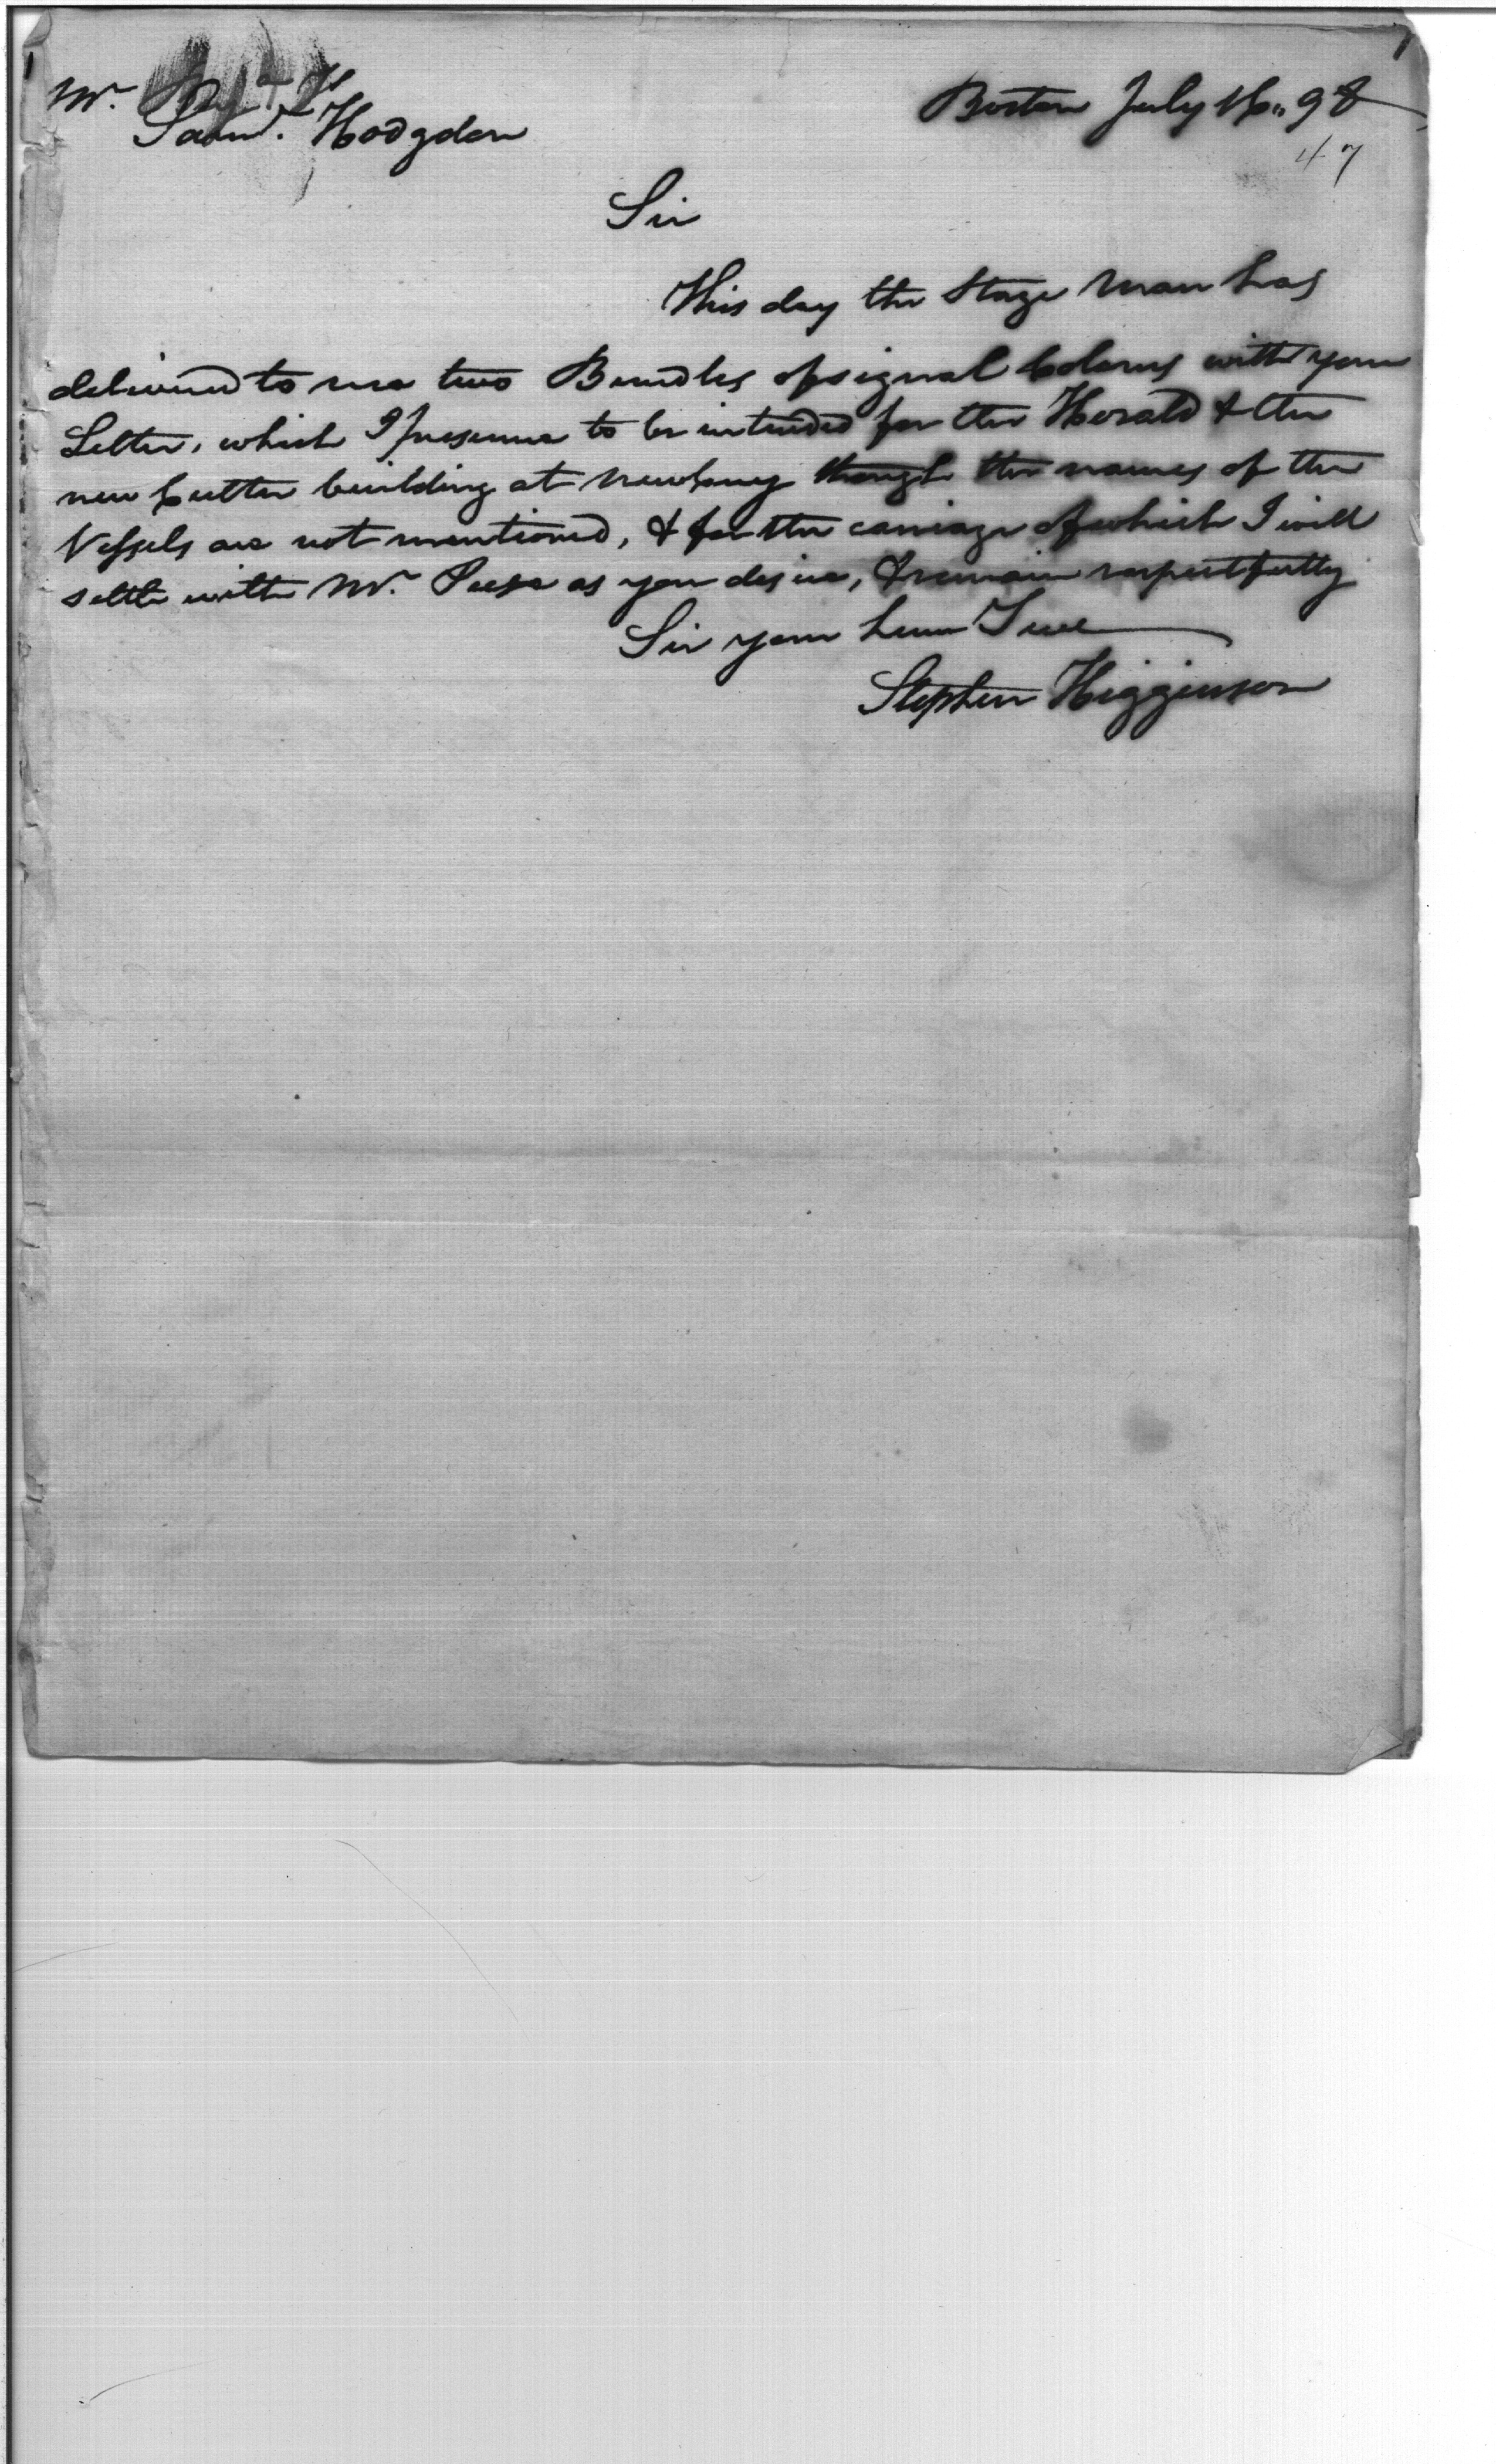 Mr.
Saml. Hodgdon
Boston July 16,, 98
47
Sir
This day the Stage Man has
delivered to me two Bundles of signal Colours with your
Letter, which I presume to be intended for the Herald & the
new Cutter building at Newbury though the names of the
Vessels are not mentioned, & for the carriage of which I will
settle with Mr. as you desire, & remain respectfully
Sir your hum
Stephen Higginson